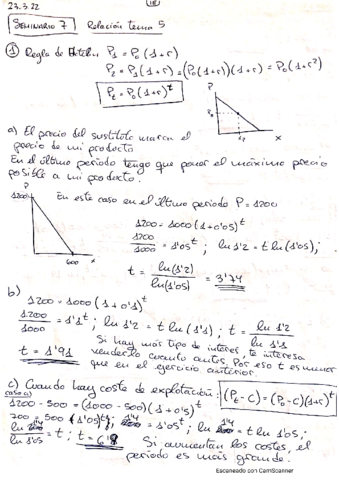 23.3.22
SEMINARIO 7 Relación tema 5
① Regla de Hotelling P₁ = P₀(1+r)
P₂ = P₁(1+r) = (P₀(1+r))(1+r) = P₀(1+r²)
Pₜ = P₀(1+r)ᵗ
P
x
a) El precio del sustituto marca el
precio de mi producto
En el último periodo tengo que poner el máximo precio
posible a mi producto.
P
1200
600
x
En este caso en el último periodo P = 1200
1200 = 1000(1+0'05)ᵗ
1200/1000 = 1'05ᵗ; ln 1'2 = t ln(1'05);
t = ln(1'2)/ln(1'05) = 3'74
b)
1200 = 1000(1+0'1)ᵗ
1200/1000 = 1'1ᵗ; ln 1'2 = t ln(1'1); t = ln 1'2/ln 1'1
t = 1'91
Si hay más tipo de interés, te interesa
venderlo cuanto antes. Por eso t es menor
que en el ejercicio anterior.
c) Cuando hay coste de explotación: (Pₜ-C) = (P₀-C)(1+r)ᵗ
caso a)
1200 - 500 = (1000 - 500)(1+0'5)ᵗ
700 = 500(1'05)ᵗ; ln 1'4 = t ln 1'05;
ln 1'4/ln 1'05 = t; t = 6'8
Si aumentan los costes, el
periodo es más grande.
Escaneado con CamScanner